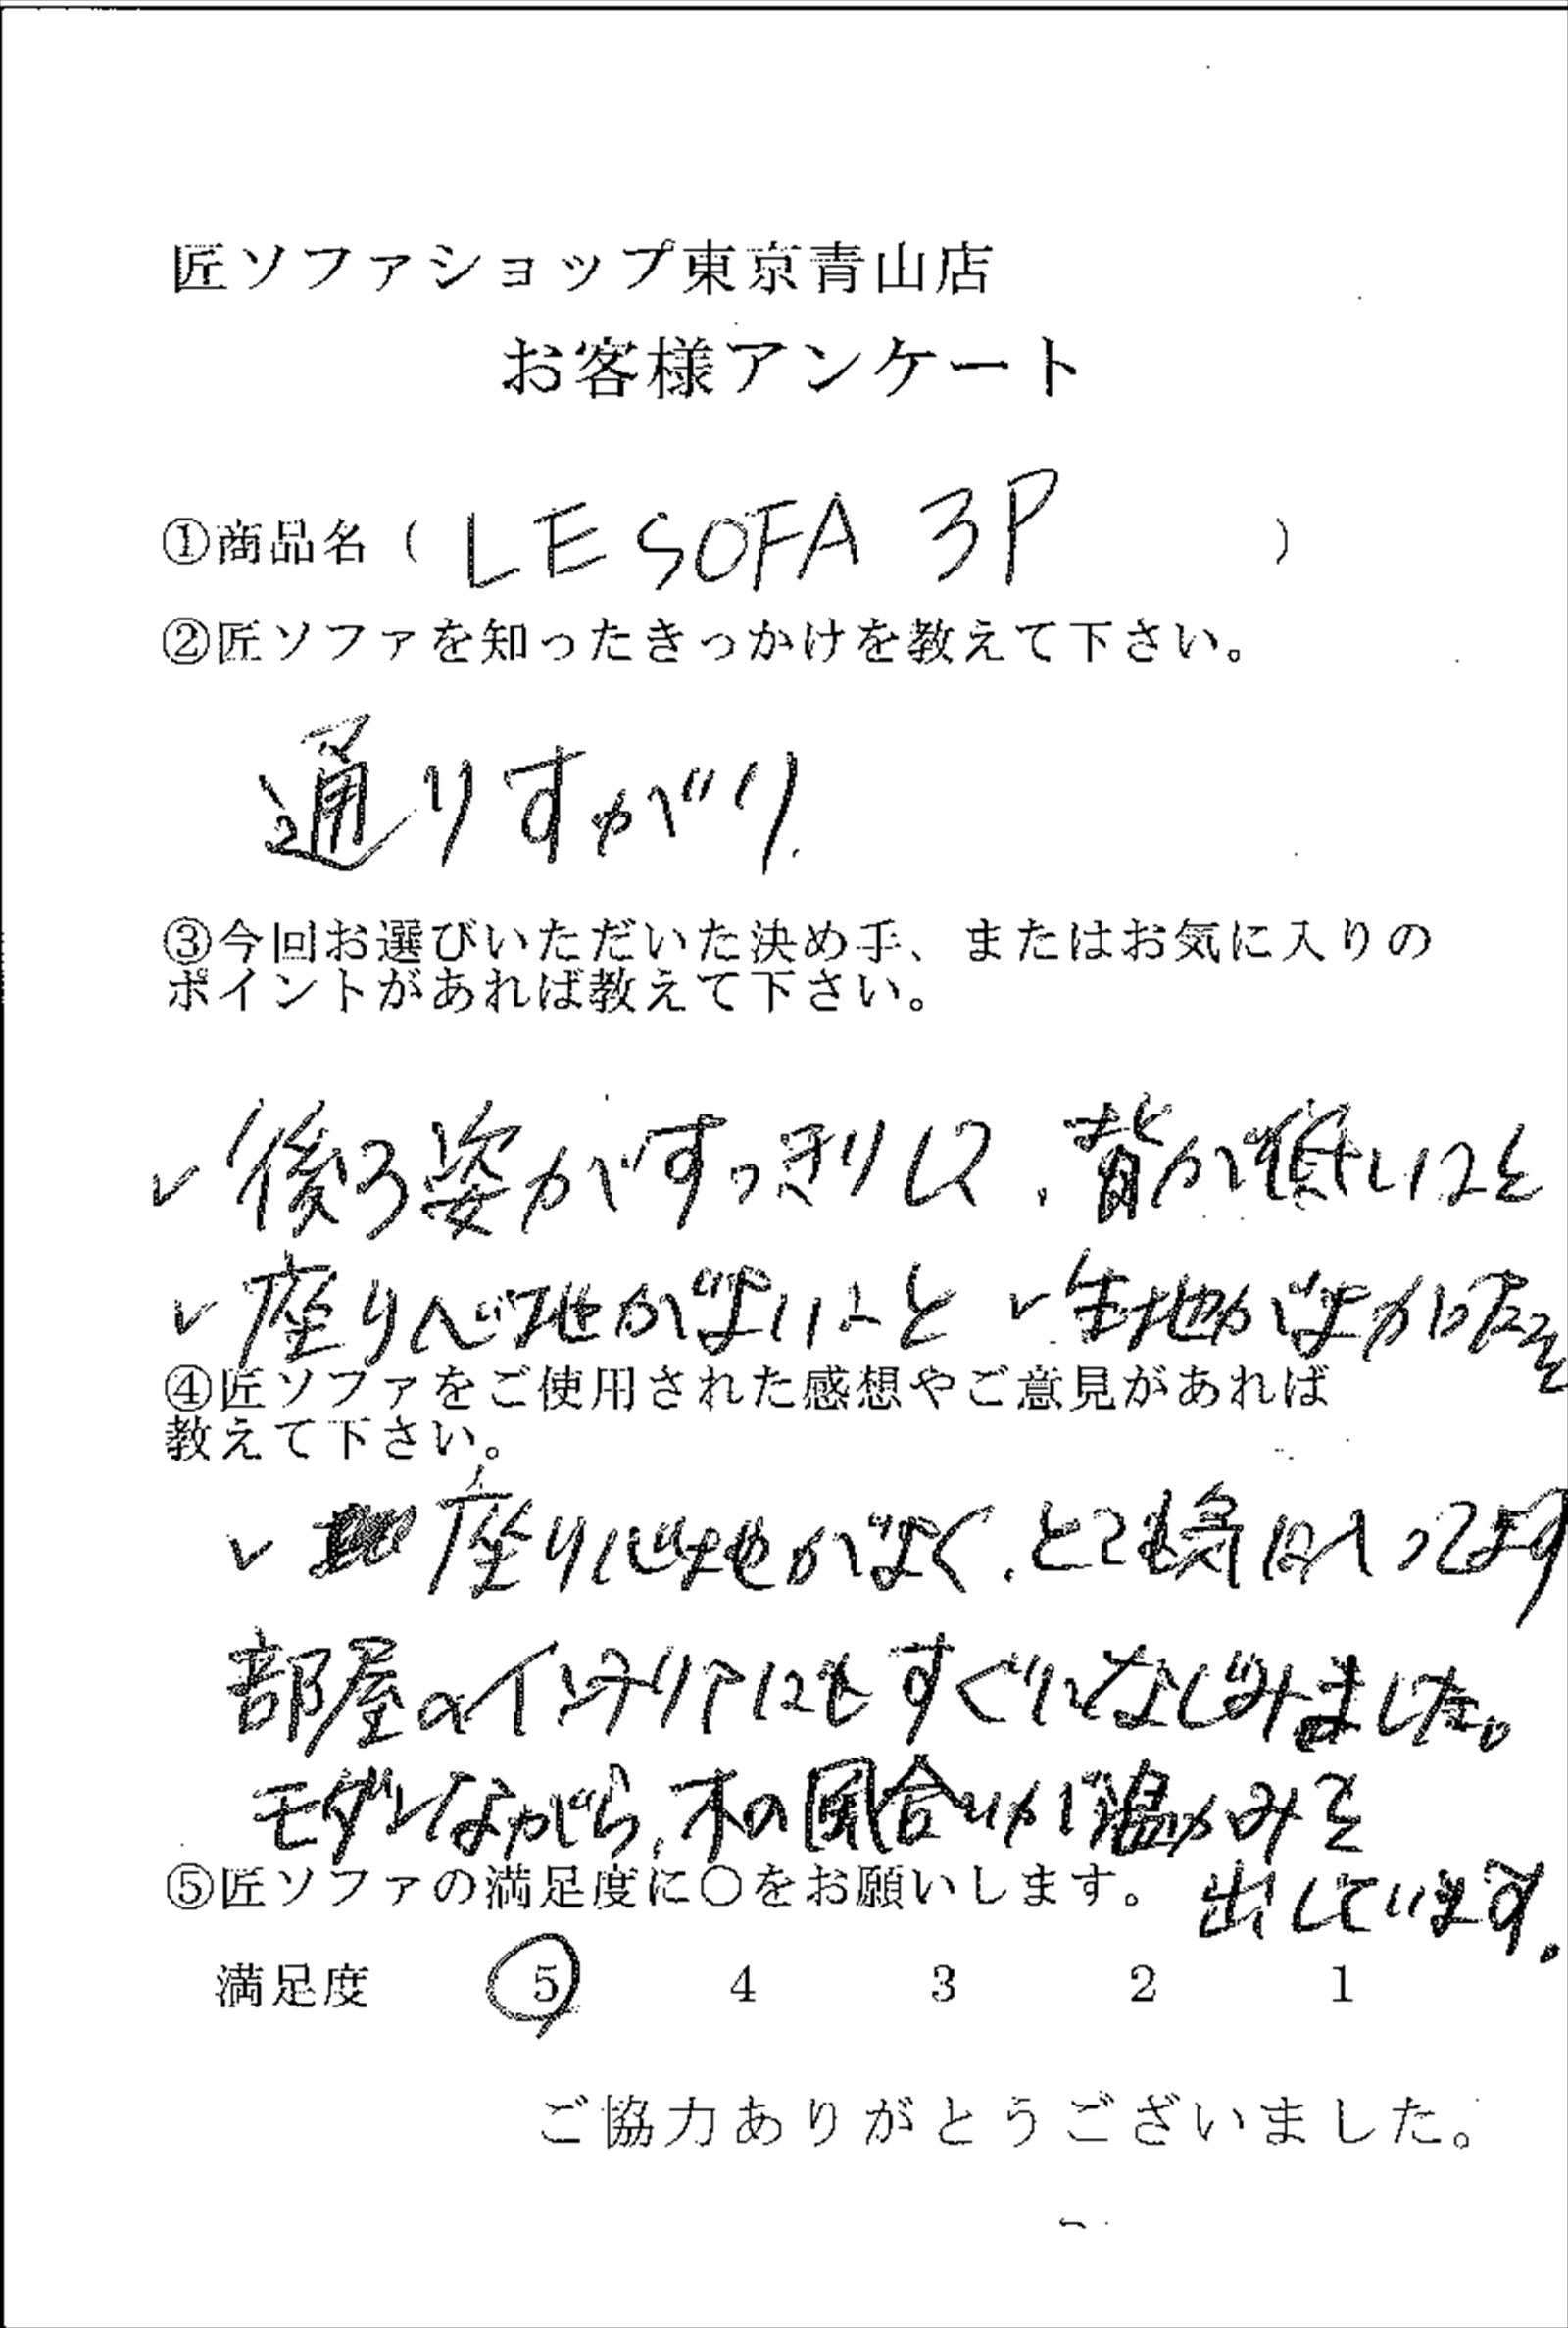 匠ソファショップ東京青山店
お客様アンケート
①商品名（ LE SOFA 3P ）
②匠ソファを知ったきっかけを教えて下さい。
通りすがり
③今回お選びいただいた決め手、またはお気に入りの
ポイントがあれば教えて下さい。
✓後ろ姿がすっきりして、背が低いこと
✓座り心地がよいこと ✓生地がよかったこと
④匠ソファをご使用された感想やご意見があれば
教えて下さい。
✓座り心地がよく、とても気に入ってます
部屋のインテリアにもすぐになじみました。
モダンながら、木の風合いが温かみを
⑤匠ソファの満足度に○をお願いします。 出しています。
満足度 5 4 3 2 1
ご協力ありがとうございました。